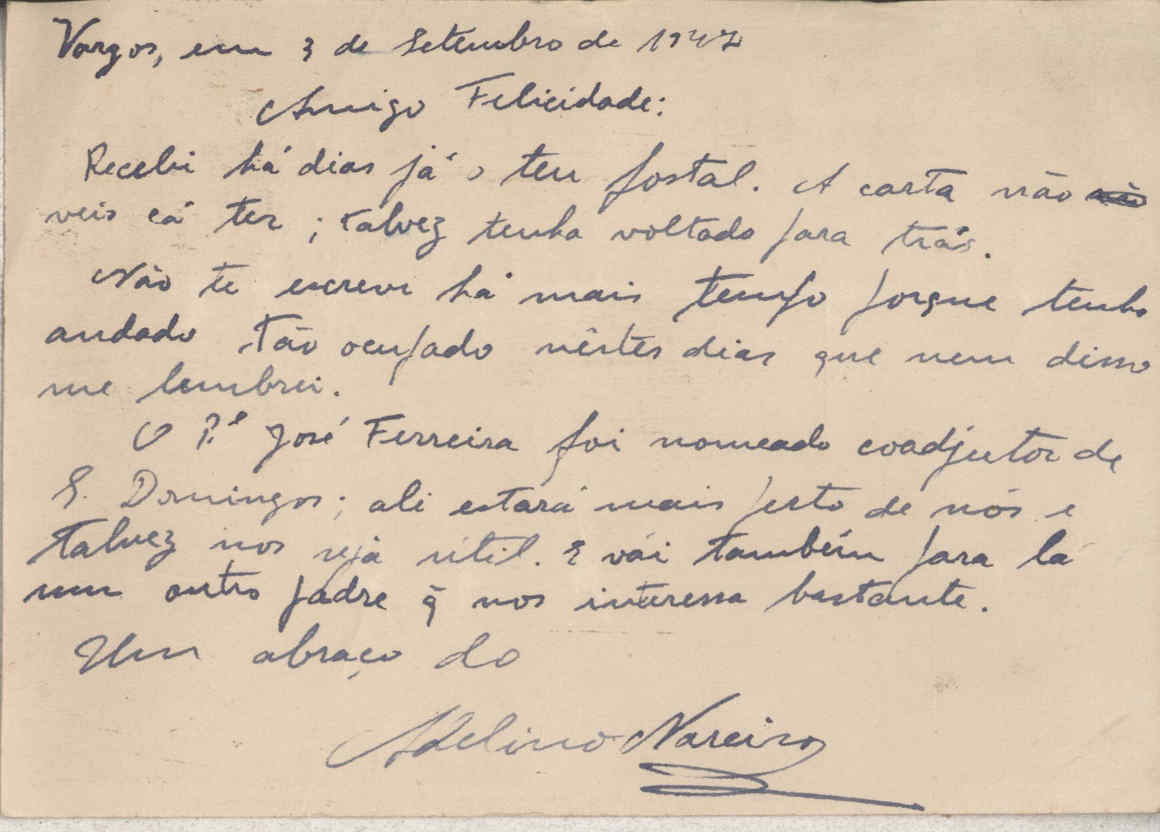 Vargos, em 3 de Setembro de 1947
Amigo Felicidade:
Recebi há dias já o teu postal. A carta não
veio cá ter; talvez tenha voltado para trás.
Não te escrevi há mais tempo porque tenho
andado tão ocupado nêstes dias que nem disso
me lembrei.
O P.e José Ferreira foi nomeado coadjutor de
S. Domingos; ali estará mais perto de nós e
talvez nos seja útil. E vái também para lá
um outro padre q̃ nos interessa bastante.
Um abraço do
Adelino Nareiro